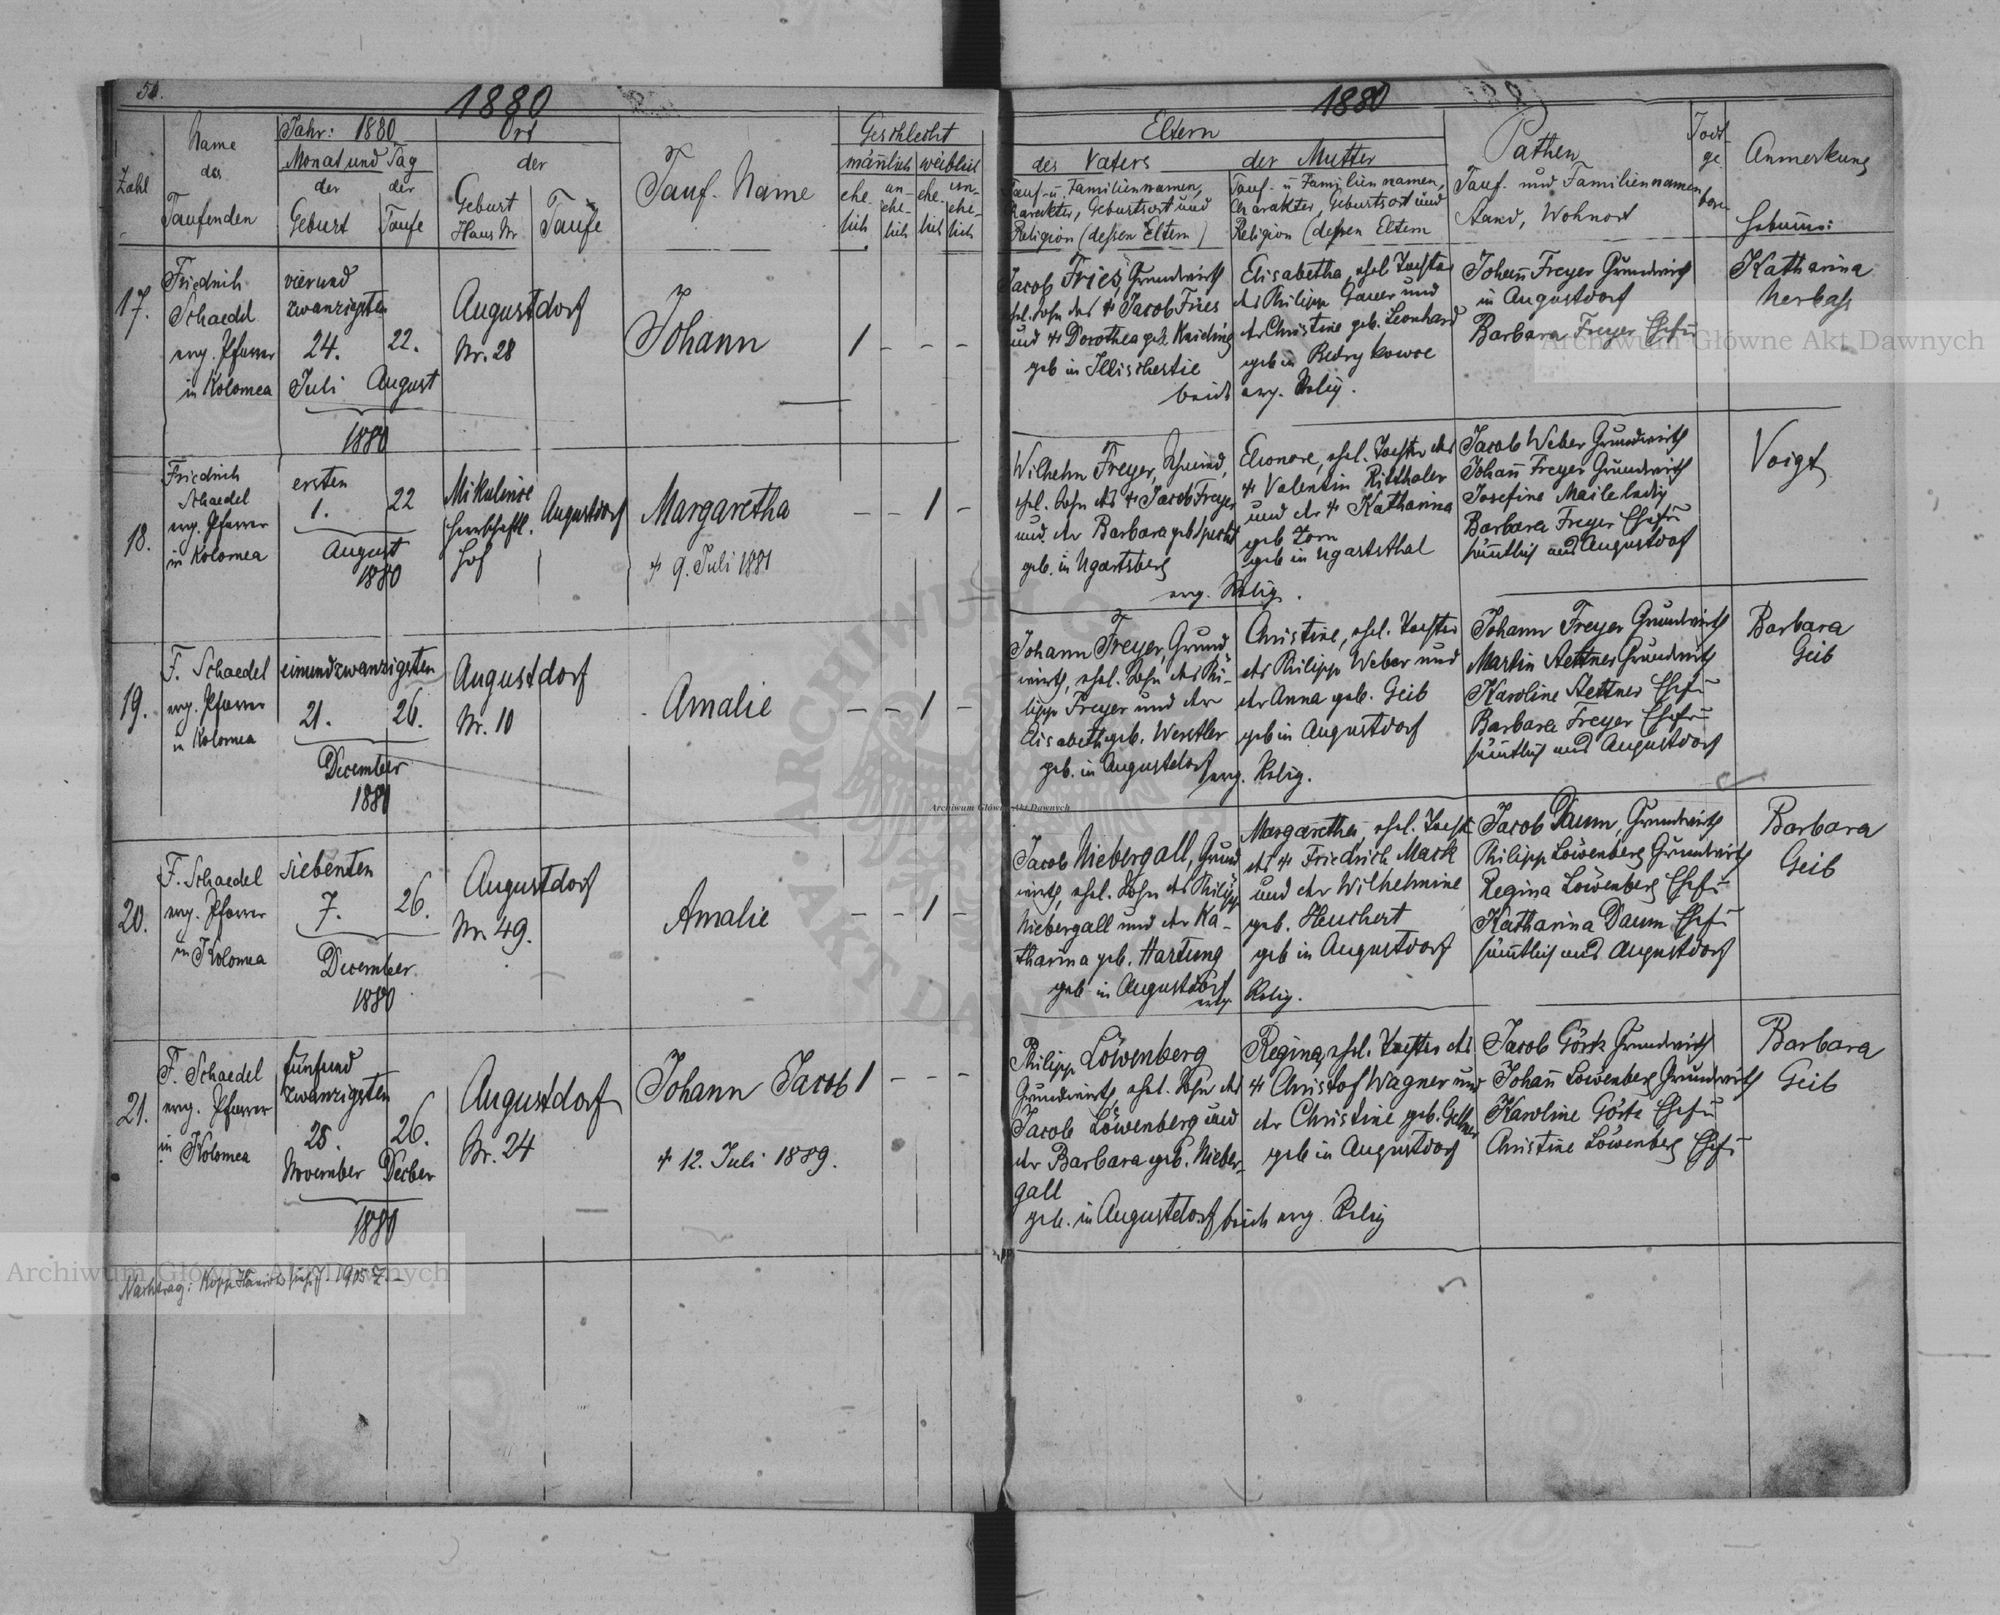 54.
1880
Zahl
Name
des
Taufenden
Jahr: 1880
Monat und Tag
der
Geburt
der
Taufe
Ort
der
Geburt
Haus Nr
Taufe
Tauf-Name
Geschlecht
männlich
weiblich
ehe-
lich
un-
ehe-
lich
ehe-
lich
un-
ehe-
lich
17.
Friedrich
Schaedel
evg. Pfarrer
in Kolomea
vierund
zwanzigsten
24. 22.
Juli August
1880
Augustdorf
Nr. 28
Johann
1 - - -
18.
Friedrich
Schaedel
evg. Pfarrer
in Kolomea
ersten
1. 22
August
1880
Mikulince
herrschaftl.
Hof
Augustdorf
Margaretha
+ 9. Juli 1881
- - 1 -
19.
F. Schaedel
evg. Pfarrer
in Kolomea
einundzwanzigsten
21. 26.
December
1880
Augustdorf
Nr. 10
Amalie
- - 1 -
20.
F. Schaedel
evg. Pfarrer
in Kolomea
siebenten
7. 26.
December
1880
Augustdorf
Nr. 49.
Amalie
- - 1 -
21.
F. Schaedel
evg. Pfarrer
in Kolomea
fünfund
zwanzigsten
25. 26.
November Decber
1880
Augustdorf
Nr. 24
Johann Jacob
+ 12. Juli 1889.
1 - - -
Nachtrag:
1905
1880
Eltern
des Vaters
Tauf- u Familiennamen,
Charakter, Geburtsort und
Religion (dessen Eltern)
der Mutter
Tauf- u Familiennamen,
Charakter, Geburtsort und
Religion (dessen Eltern
Pathen
Tauf- und Familiennamen
Stand, Wohnort
Todt
ge
bore
Anmerkung
Hebamme:
Jacob Fries, Grundwirth
ehel. Sohn des + Jacob Fries
und + Dorothea geb.
geb in Illischestie
beide
Elisabetha, ehel Tochter
des Philipp Gauer und
der Christine geb. Leonhard
geb in
evg. Relig.
Johann Freyer Grundwirth
in Augustdorf
Barbara Freyer Ehefr
Katharina
Nerbass
Wilhelm Freyer, Schmied,
ehel. Sohn des + Jacob Freyer
und der Barbara geb Specht
geb. in Ugartsberg
evg. Relig.
Eleonore, ehel. Tochter des
+ Valentin Ritthaler
und der + Katharina
geb Zorn
geb in Ugartsthal
Jacob Weber Grundwirth
Johann Freyer Grundwirth
Josefine Maile ledig
Barbara Freyer Ehefr
sämtlich aus Augustdorf
Voigt
Johann Freyer, Grund
wirth, ehel. Sohn des Phi-
lipp Freyer und der
Elisabeth geb. Werstler
geb. in Augustdorf evg. Relig.
Christine, ehel. Tochter
des Philipp Weber und
der Anna geb. Geib
geb in Augustdorf
Johann Freyer Grundwirth
Martin Stettner Grundwirth
Karoline Stettner Ehefr
Barbara Freyer Ehefr
sämtlich aus Augustdorf
Barbara
Geib
Jacob Niebergall, Grund
wirth, ehel. Sohn des Philipp
Niebergall und der Ka-
tharina geb. Hartung
geb in Augustdorf
evg. Relig.
Margaretha, ehel. Tocht
des + Friedrich Mack
und der Wilhelmine
geb. Heuchert
geb in Augustdorf
Jacob Daum, Grundwirth
Philipp Löwenberg Grundwirth
Regina Löwenberg Ehefr
Katharina Daum Ehefr
sämtlich aus Augustdorf
Barbara
Geib
Philipp Löwenberg
Grundwirth, ehel. Sohn des
Jacob Löwenberg und
der Barbara geb. Nieber-
gall
geb. in Augustdorf beide evg. Relig
Regina, ehel. Tochter des
+ Christof Wagner und
der Christine geb.
geb in Augustdorf
Jacob Görk Grundwirth
Johann Löwenberg Grundwirth
Karoline Görk Ehefr
Christine Löwenberg Ehefr
Barbara
Geib
Archiwum Główne Akt Dawnych
Archiwum Główne Akt Dawnych
Archiwum Główne Akt Dawnych